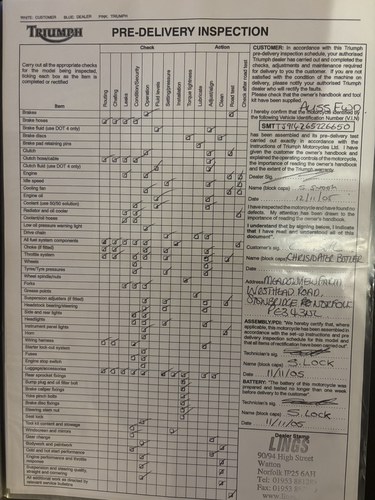 WHITE CUSTOMER BLUE DEALER PINK TRIUMPH
TRIUMPH
PRE-DELIVERY INSPECTION
Carry out all the appropriate checks
for the model being inspected,
ticking each box as the item is
completed or rectified
Check
Action
Item
Routing
Chafing
Leaks
Condition/Security
Operation
Fluid levels
Settings/pressure
Installation
Torque tightness
Lubricate
Adjust/align
Clean
Road test
Check after road test
Brakes
Brake hoses
Brake fluid (use DOT 4 only)
Brake discs
Brake pad retaining pins
Clutch
Clutch hoses/cable
Clutch fluid (use DOT 4 only)
Engine
Idle speed
Cooling fan
Engine oil
Coolant (use 50/50 solution)
Radiator and oil cooler
Coolant/oil hoses
Low oil pressure warning light
Drive chain
All fuel system components
Choke (if fitted)
Throttle system
Wheels
Tyres/Tyre pressures
Wheel spindles/nuts
Forks
Grease points
Suspension adjusters (if fitted)
Headstock bearing/steering
Side and rear lights
Headlights
Instrument panel lights
Horn
Wiring harness
Starter lock-out system
Fuses
Engine stop switch
Luggage/accessories
Rear sprocket fixings
Sump plug and oil filter bolt
Brake caliper fixings
Yoke pinch bolts
Brake disc fixings
Steering stem nut
Seat lock
Tool kit content and stowage
Windscreen and mirrors
Gear change
Bodywork and paintwork
Cold and hot start performance
Engine performance and throttle
response
Suspension and steering quality,
straight and cornering
All additional work as directed by
relevant service bulletins
CUSTOMER: In accordance with this Triumph
pre-delivery inspection schedule, your authorised
Triumph dealer has carried out and completed the
checks, adjustments and maintenance required
for delivery to you the customer. If you are not
satisfied with the condition of the machine on
delivery, please notify your authorised Triumph
dealer who will rectify the faults.
Please check that the owner's handbook and tool
kit have been supplied.
I hereby confirm that the motorcycle identified by the
following Vehicle Identification Number (V.I.N)
SMT
has been assembled and its pre-delivery test
carried out exactly in accordance with the
instructions of Triumph Motorcycles Ltd. I have
given the customer the owner's handbook and
explained the operating controls of the motorcycle,
the importance of reading the owner's handbook
and the extent of the Triumph warranty.
Dealer Sig.
Name (block caps)
Date 12/11/05
I have inspected the motorcycle and have found no
defects. My attention has been drawn to the
importance of reading the owner's handbook.
I understand that by signing below, I indicate
that I have read and understand all of this
document".
Customer's sig.
Name (block caps) CHRISTOPHER POTTER
Date
Address
WESTHEAD ROAD,
PE34 3NL
ASSEMBLY/PDI: "We hereby certify that, where
applicable, this motorcycle has been assembled in
accordance with the set-up instructions and pre
delivery inspection schedule for this model and
that all items of rectification have been carried out".
Technician's sig.
Name (block caps) S. LOCK
Date 11/11/05
BATTERY: "The battery of this motorcycle was
prepared and tested no longer than one week
before delivery to the customer"
Technician's sig.
Name (block caps) S. LOCK
Date 11/11/05
Dealer Stamp
LINGS
90/94 High Street
Watton
Norfolk IP25 6AH
Tel: 01953
Fax: 01953